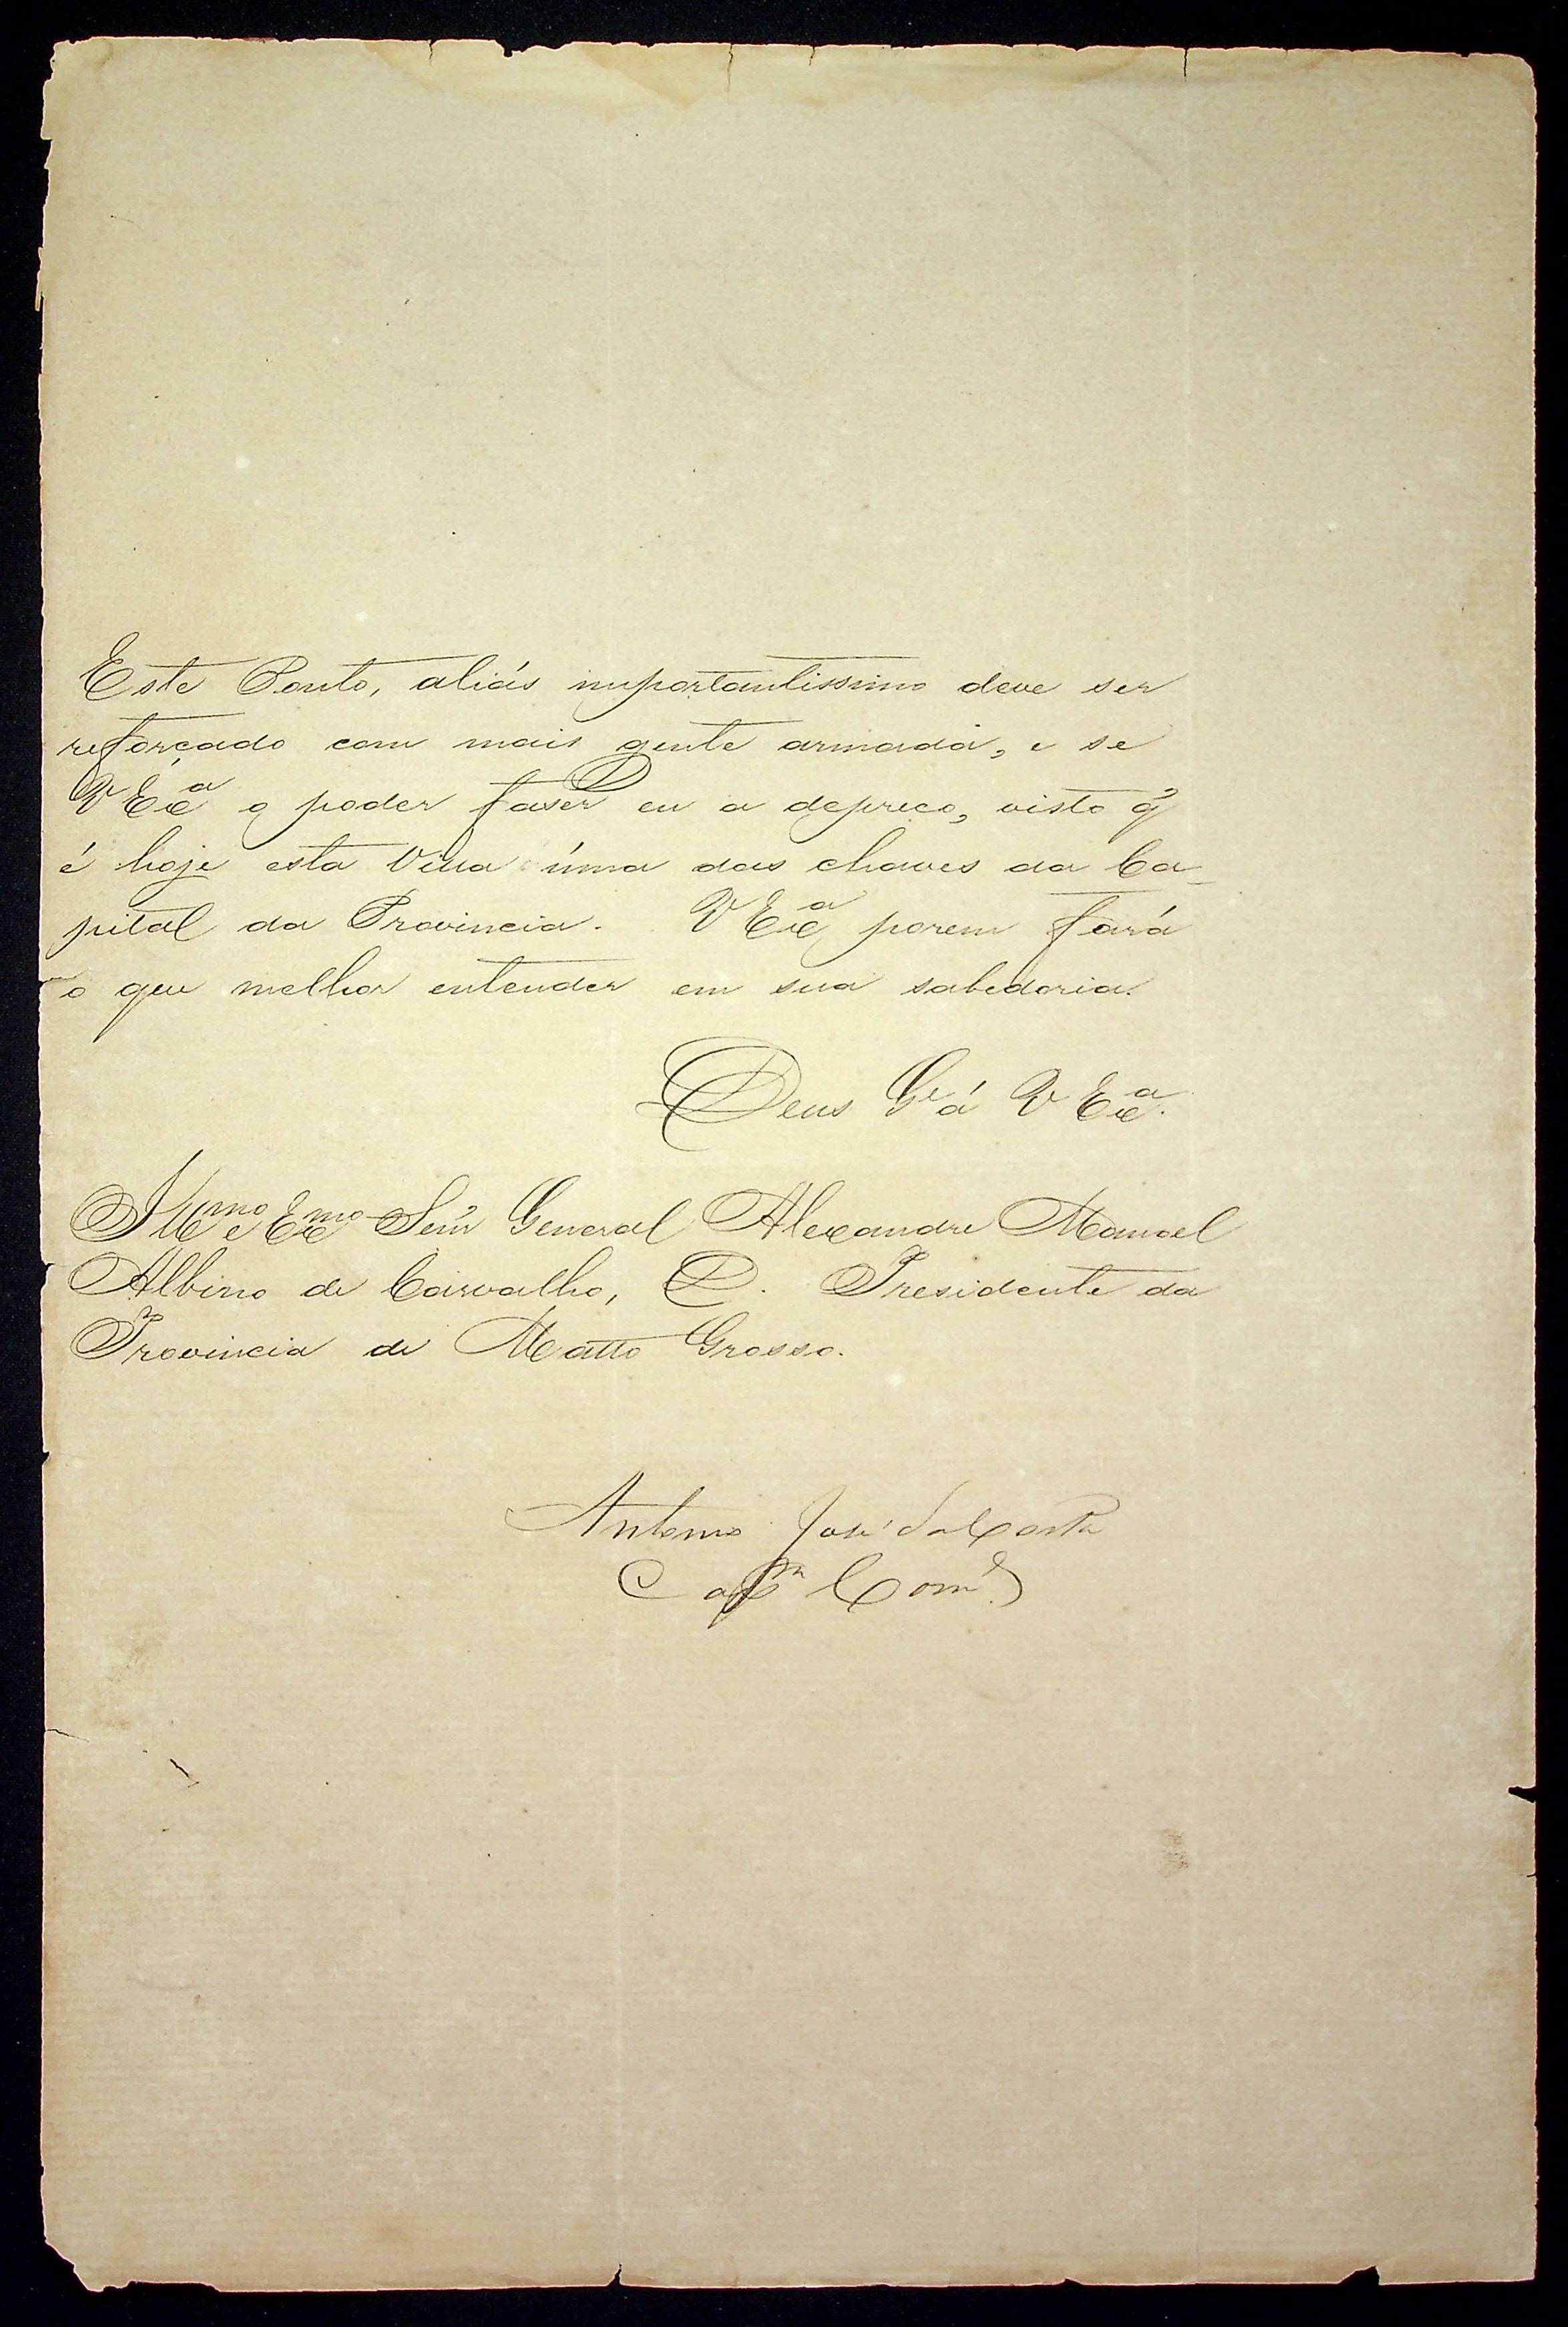 Este Ponto, aliás importantissimo deve ser
reforçado com mais gente armada, e se
V Exᵃ o poder faser eu a depreco, visto q̃
é hoje esta Villa úma das chaves da Ca-
pital da Provincia. V Exᵃ porem fará
o que melhor entender em sua sabedoria.
Deus Gᵉ á V Exᵃ.
Illᵐᵒ e Exᵐᵒ Senr̃ General Alexandre Manoel
Albino de Carvalho, D. Presidente da
Provincia de Matto Grosso.
Antonio José da Costa
Capᵐ Comᵉ